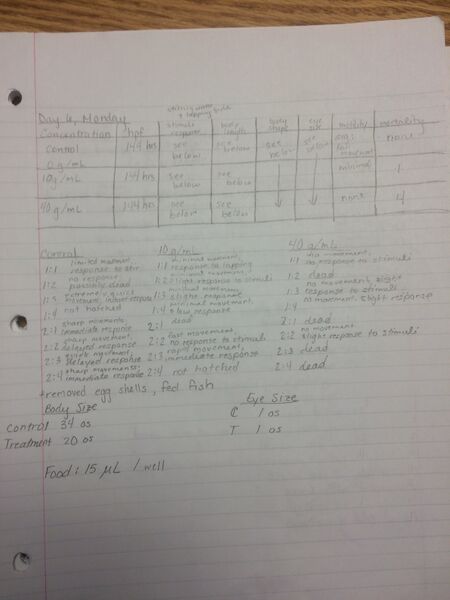 stirring water + tapping side
Day 6, Monday
Concentration hpf stimuli response body length body shape eye size motility mortality
Control 0 g/mL 144 hrs see below see below see below see below none
10 g/mL 144 hrs see below see below minimal 1
40 g/mL 144 hrs see below see below none 4
Control
1:1 limited movement, response to stir
1:2 no response possibly dead
1:3 extremely quick movement, instant response
1:4 not hatched
2:1 sharp movements, immediate response
2:2 sharp movement, delayed response
2:3 quick movement, delayed response
2:4 sharp movements, immediate response
10 g/mL
1:1 minimal movement, response to tapping
1:2 minimal movement, slight response to stimuli
1:3 minimal movement, slight response
1:4 minimal movement, slow response
2:1 dead
2:2 fast movement, no response to stimuli
2:3 rapid movement, immediate response
2:4 not hatched
40 g/mL
1:1 no movement, no response to stimuli
1:2 dead
1:3 no movement, slight response to stimuli
1:4 no movement, slight response
2:1 dead
2:2 no movement slight response to stimuli
2:3 dead
2:4 dead
*removed egg shells, fed fish
Body Size
Control 34 os
Treatment 20 os
Eye Size
C 1 os
T 1 os
Food: 15 µL / well